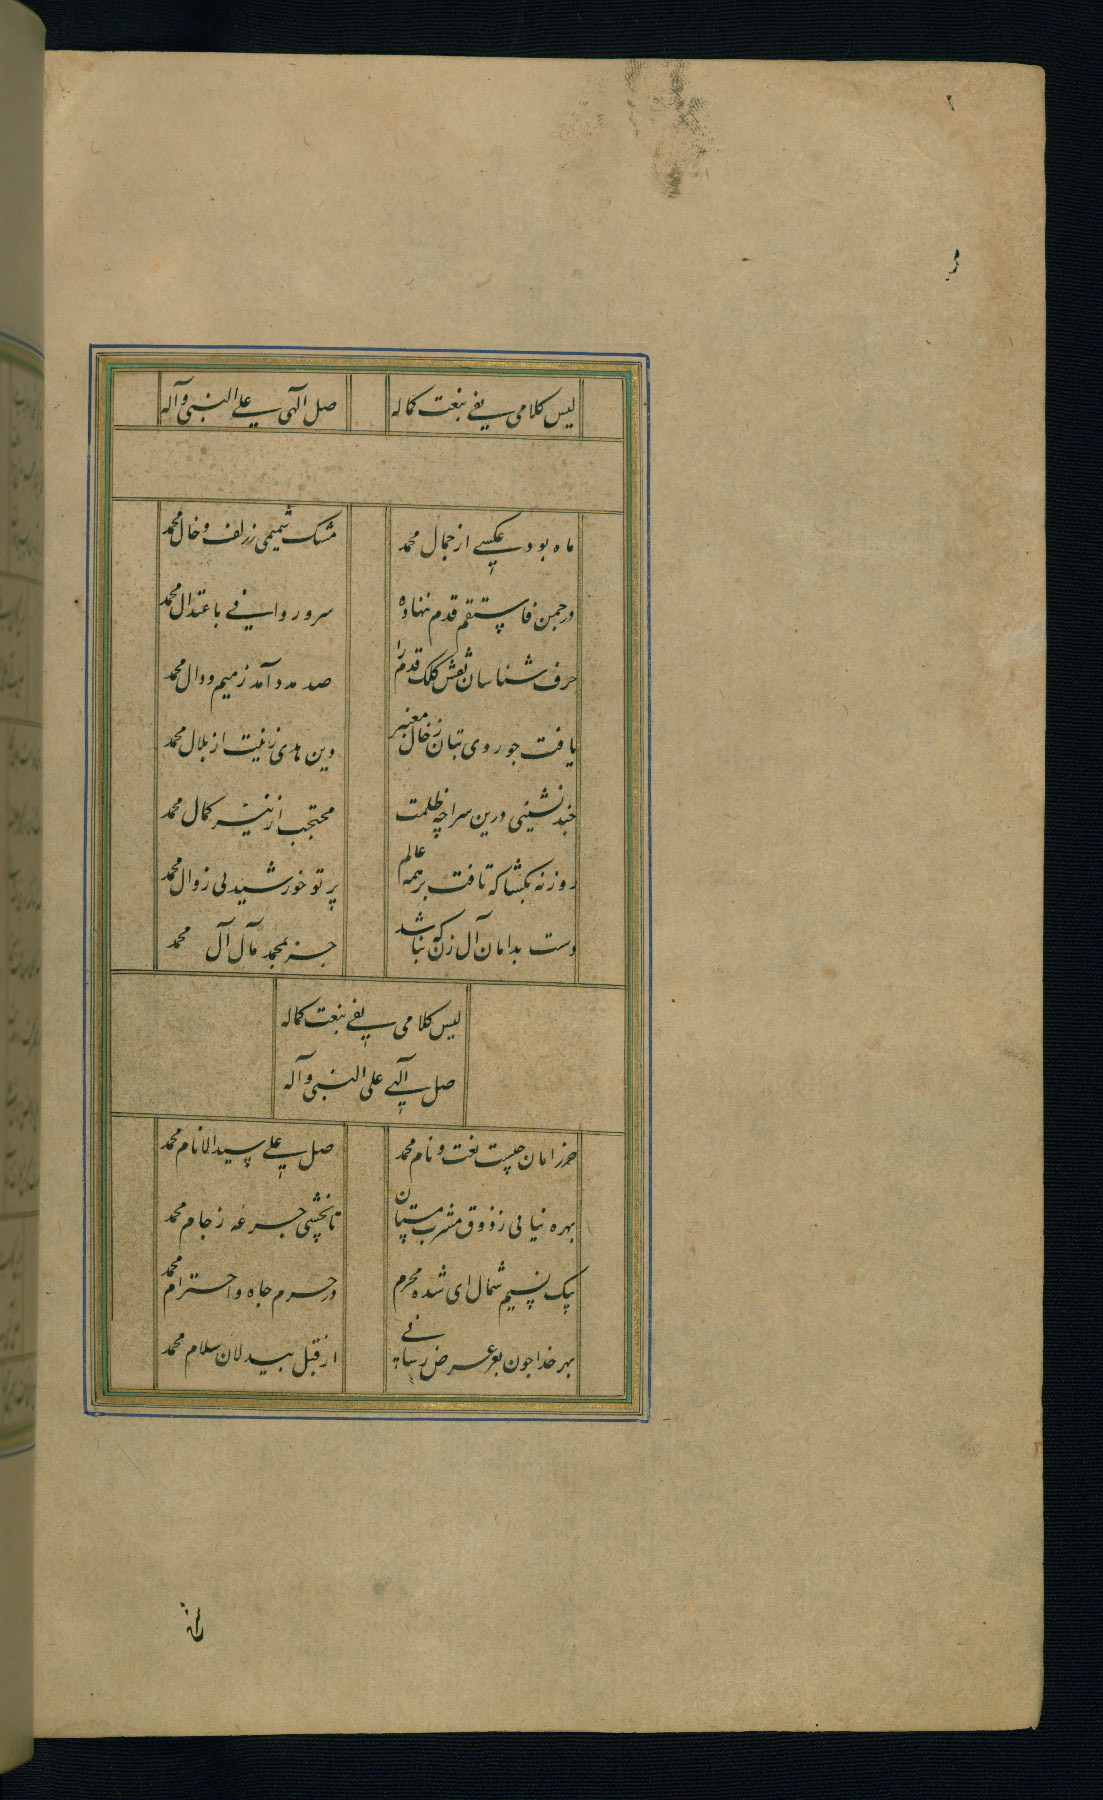 لیس کلامی یفی بنعت کماله صل الهی علی النبی و آله
ماه بود عکسی از جمال محمد مشک شمیمی ز زلف و خال محمد
در چمن فاستقم قدم ننهاده سرو روانی باعتدال محمد
حرف شناسان نقش کلک قدم را صد مدد آمد ز میم و دال محمد
یافت چو روی بتان ز خال معنبر دین هدی زینت از بلال محمد
چند نشینی درین سراچه ظلمت محتجب از نیر کمال محمد
روزنه بگشا که تافت بر همه عالم پرتو خورشید بی زوال محمد
دست بدامان آل زن که نباشد جز بمحمد مآل آل محمد
لیس کلامی یفی بنعت کماله
صل الهی علی النبی و آله
حرز امان چیست نعت و نام محمد صل علی سید الانام محمد
بهره نیابی ز ذوق مشرب مستان تا نچشی جرعه ز جام محمد
پیک نسیم شمال ای شده محرم در حرم جاه و احترام محمد
بهر خدا چون بعرض رسانی از قبل بیدلان سلام محمد